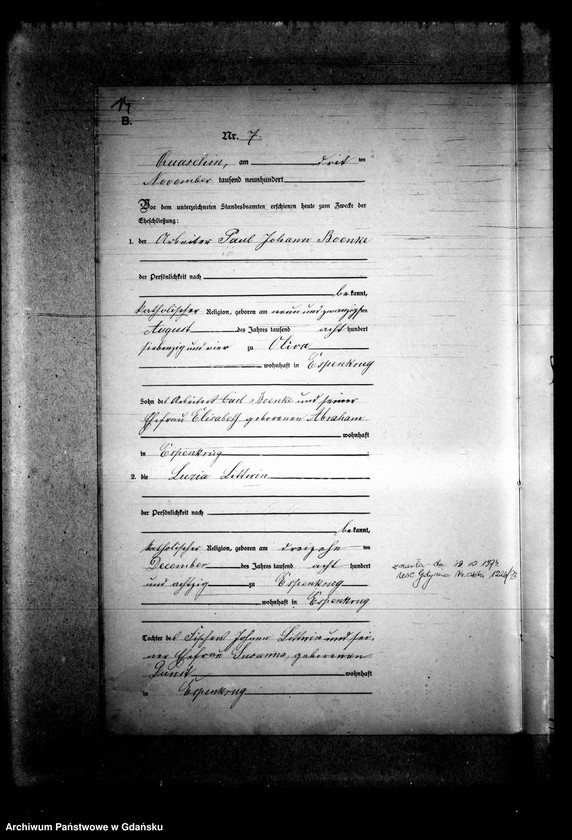 B.
Nr. 7
Quaschin, am drit ten
November tausend neunhundert
Vor dem unterzeichneten Standesbeamten erschienen heute zum Zwecke der
Eheschließung:
1. der Arbeiter Paul Johann Boenke
der Persönlichkeit nach
bekannt,
katholischer Religion, geboren am neun und zwanzigsten
August des Jahres tausend acht hundert
siebenzig und vier zu Oliva
wohnhaft in Espenkrug
Sohn des Arbeiters Carl Boenke und seiner
Ehefrau Elisabeth geborenen Abraham
wohnhaft
in Espenkrug
2. die Luzia Littwin
der Persönlichkeit nach
bekannt,
katholischer Religion, geboren am dreizehn ten
December des Jahres tausend acht hundert
und achtzig zu Espenkrug
wohnhaft in Espenkrug
Tochter des Fischers Johann Littwin und sei-
ner Ehefrau Susanna, geborenen
wohnhaft
in Espenkrug
zmarła dn.
USC Gdynia
Archiwum Państwowe w Gdańsku